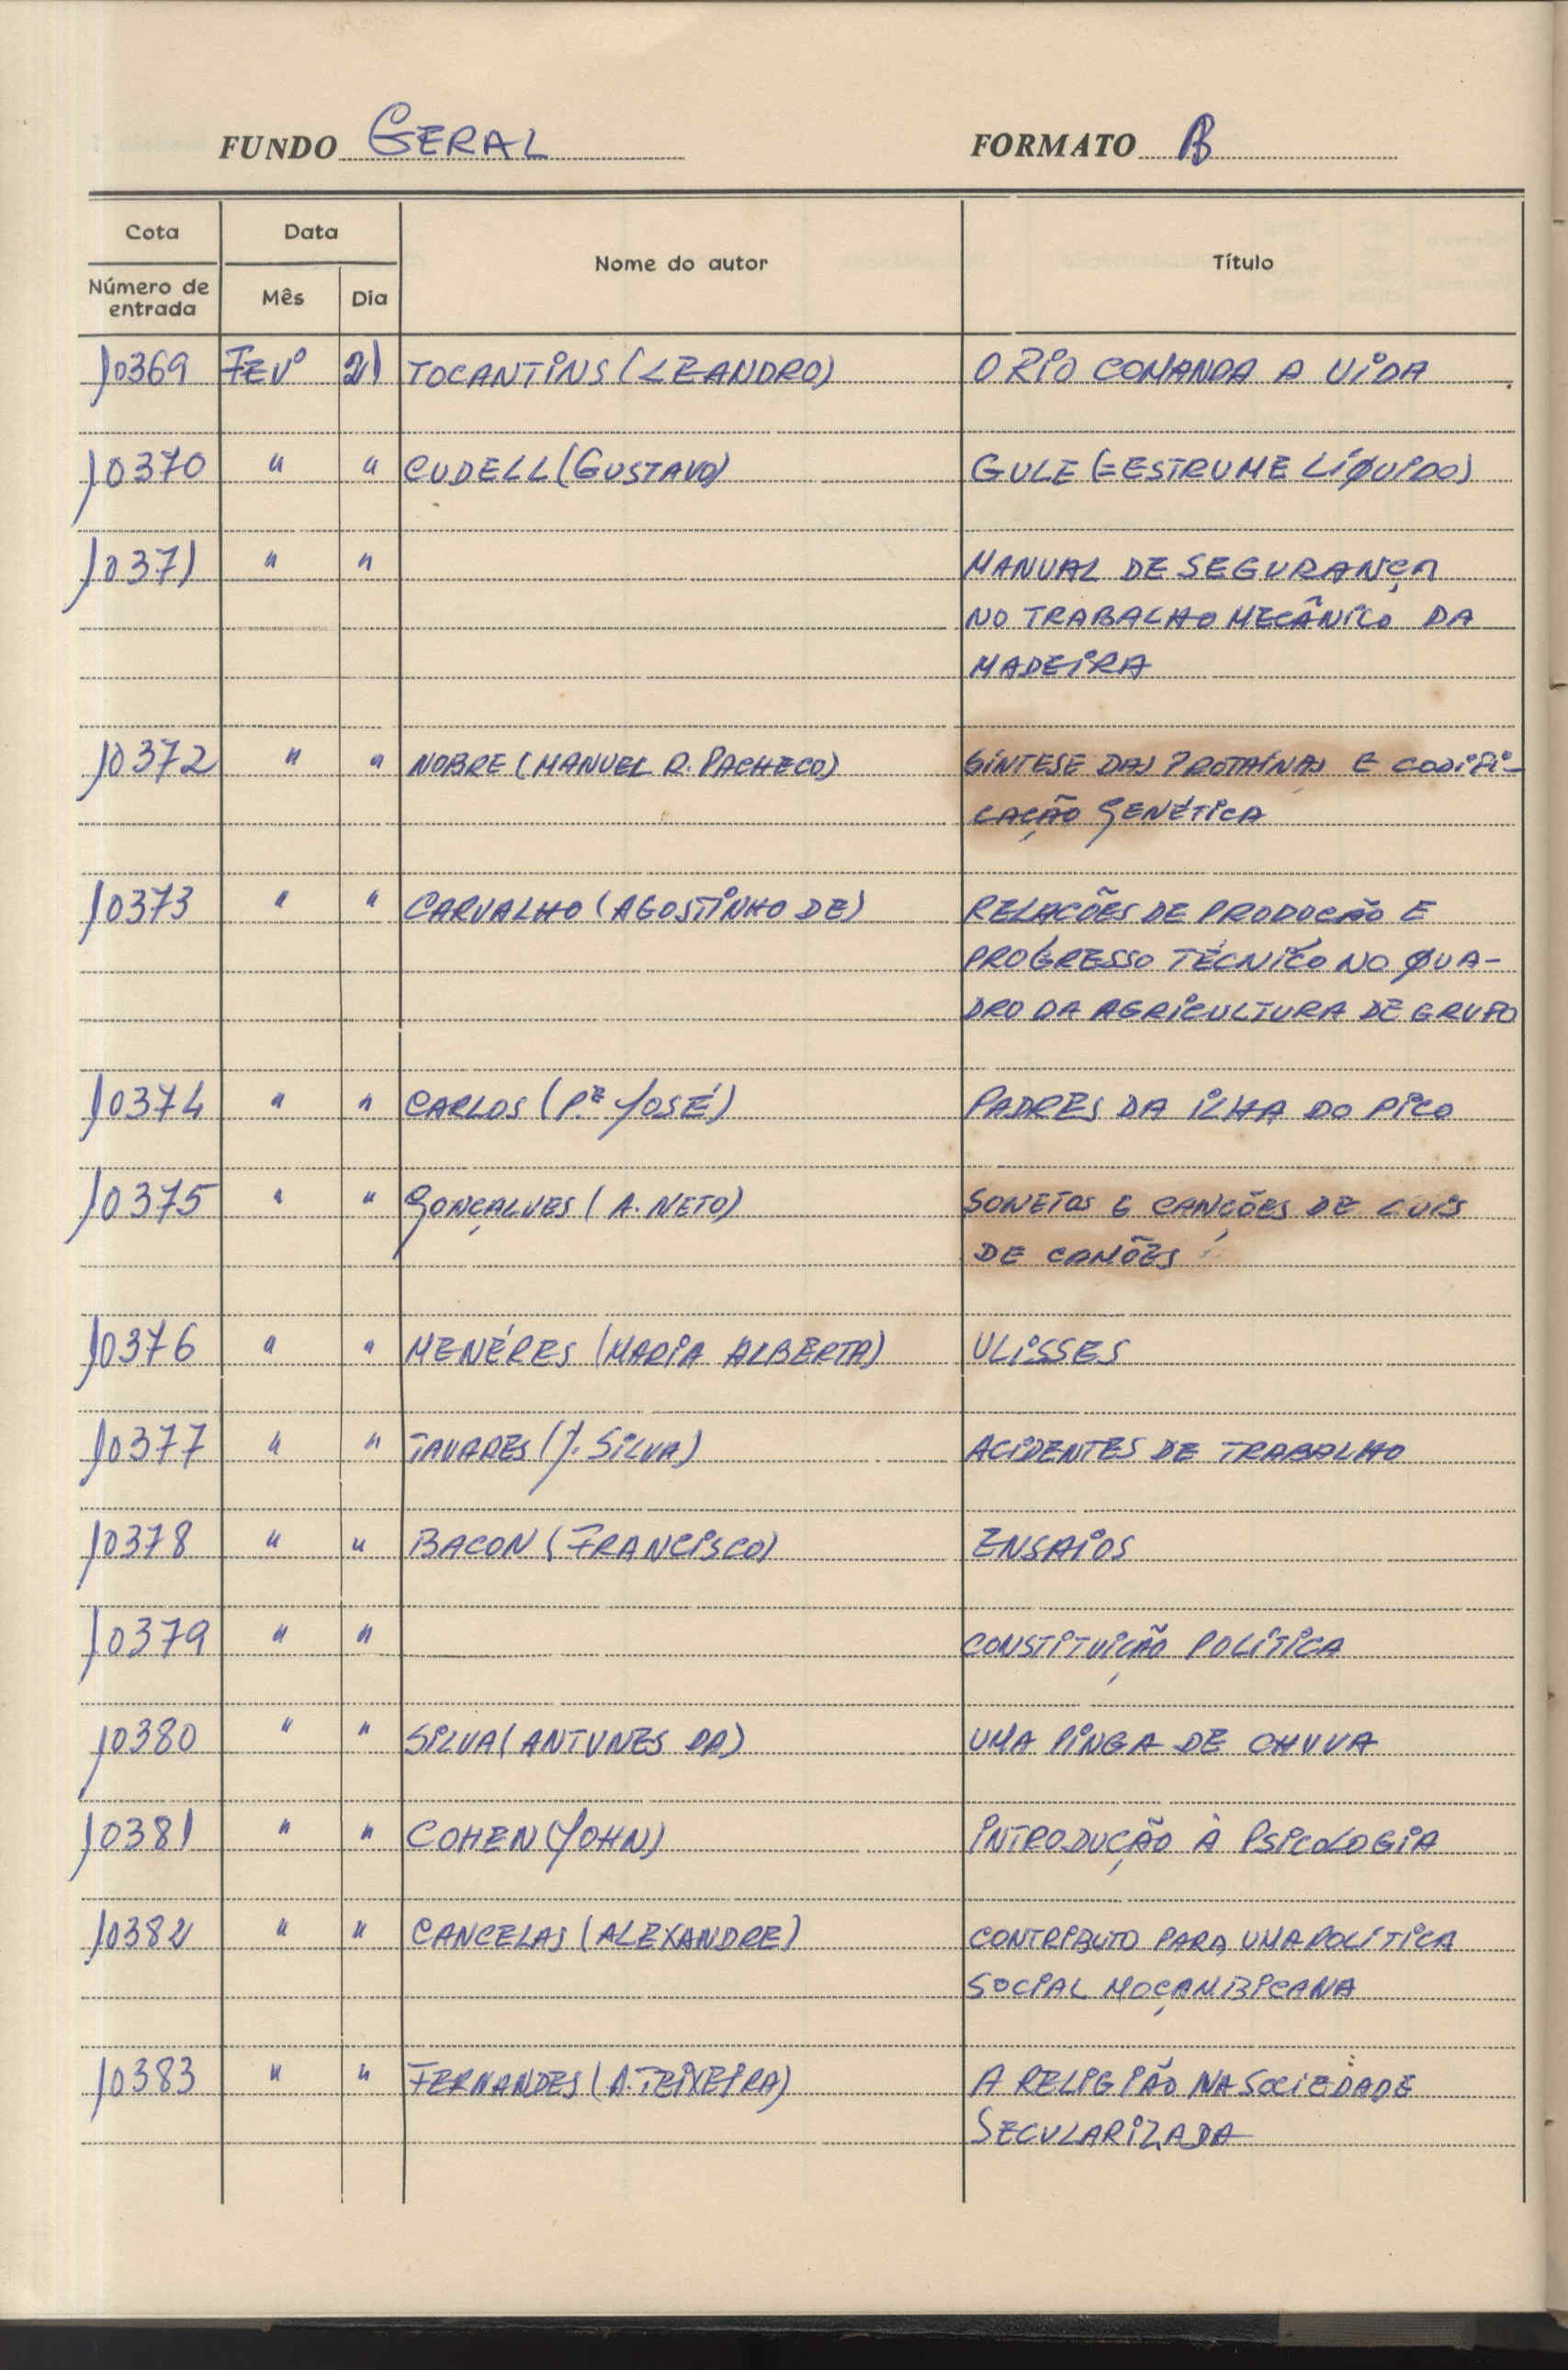 FUNDO GERAL FORMATO B
Cota Data Nome do autor Título
Número de entrada Mês Dia
10369 FEVº 21 TOCANTINS (LEANDRO) O RIO COMANDA A VIDA
10370 " " CUDELL (GUSTAVO) GULE (= ESTRUME LÍQUIDO)
10371 " " MANUAL DE SEGURANÇA
NO TRABALHO MECÂNICO DA
MADEIRA
10372 " " NOBRE (MANUEL R. PACHECO) SÍNTESE DAS PROTAÍNAS E CODIFI-
CAÇÃO GENÉTICA
10373 " " CARVALHO (AGOSTINHO DE) RELAÇÕES DE PRODUÇÃO E
PROGRESSO TÉCNICO NO QUA-
DRO DA AGRICULTURA DE GRUPO
10374 " " CARLOS (P.E JOSÉ) PADRES DA ILHA DO PICO
10375 " " GONÇALVES (A. NETO) SONETOS E CANÇÕES DE LUIS
DE CAMÕES
10376 " " MENÉRES (MARIA ALBERTA) ULISSES
10377 " " TAVARES (J. SILVA) ACIDENTES DE TRABALHO
10378 " " BACON (FRANCISCO) ENSAIOS
10379 " " CONSTITUIÇÃO POLÍTICA
10380 " " SILVA (ANTUNES DA) UMA PINGA DE CHUVA
10381 " " COHEN (JOHN) INTRODUÇÃO À PSICOLOGIA
10382 " " CANCELAS (ALEXANDRE) CONTRIBUTO PARA UMA POLÍTICA
SOCIAL MOÇAMBICANA
10383 " " FERNANDES (A. TEIXEIRA) A RELIGIÃO NA SOCIEDADE
SECULARIZADA